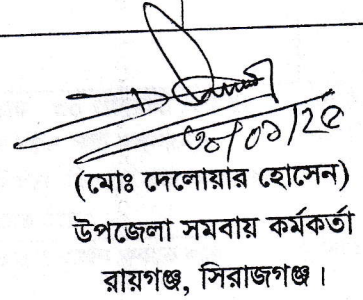 ৩০/০৯/২৫
(মোঃ দেলোয়ার হোসেন)
উপজেলা সমবায় কর্মকর্তা
রায়গঞ্জ, সিরাজগঞ্জ।